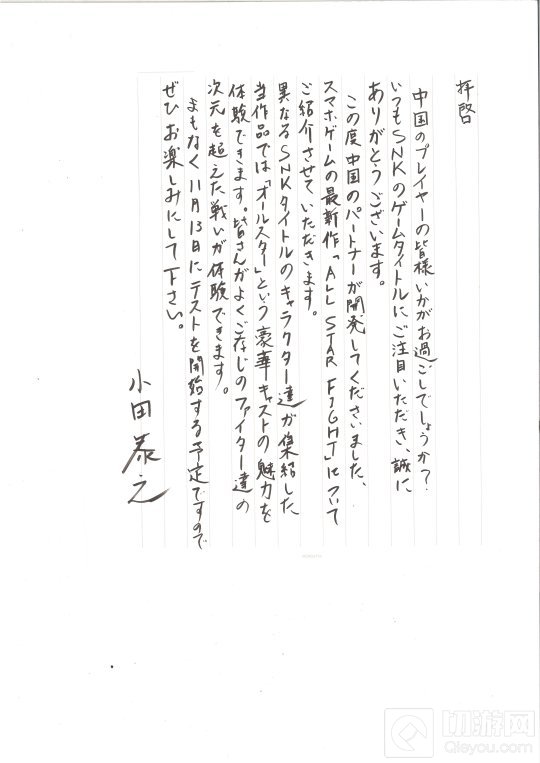 拝啓
中国のプレイヤーの皆様いかがお過ごしでしょうか?
いつもSNKのゲームタイトルにご注目いただき、誠に
ありがとうございます。
この度中国のパートナーが開発してくださいました、
スマホゲームの最新作「ALL STAR FIGHT」について
ご紹介させていただきます。
異なるSNKタイトルのキャラクター達が集結した
当作品では「オールスター」という豪華キャストの魅力を
体験できます。皆さんがよくご存じのファイター達の
次元を超えた戦いが体験できます。
まもなく11月13日にテストを開始する予定ですので
ぜひお楽しみにして下さい。
小田泰之
切游网
Qieyou.com